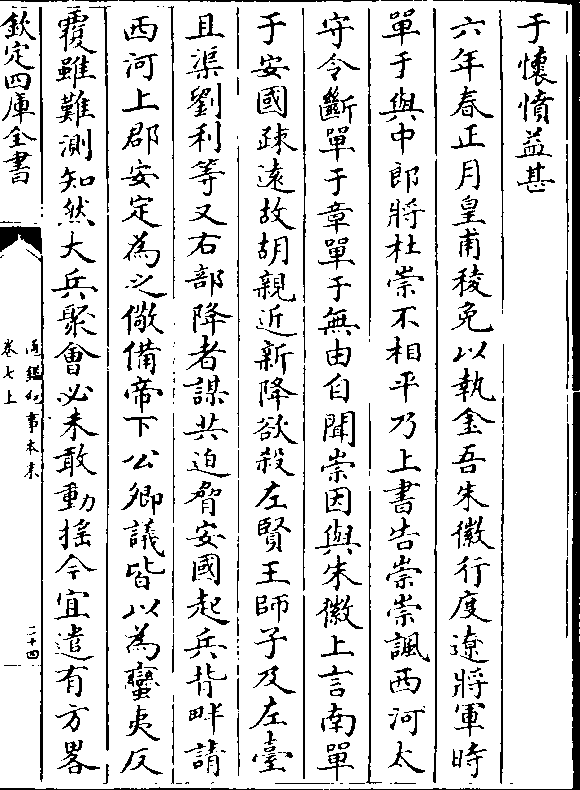 于懷憤益甚
六年春正月皇甫稜免以執金吾朱徽行度遼將軍時
單于與中郎將杜崇不相平乃上書告崇崇諷西河太
守令斷單于章單于無由自聞崇因與朱徽上言南單
于安國疎遠故胡親近新降欲殺左賢王師子及左臺
且渠劉利等又右部降者謀共迫脅安國起兵背畔請
西河上郡安定為之儆備帝下公卿議皆以為蠻夷反
覆雖難測知然大兵聚會必未敢動搖今宜遣有方畧
欽定四庫全書
通鑑紀事本末
卷七上
二十四